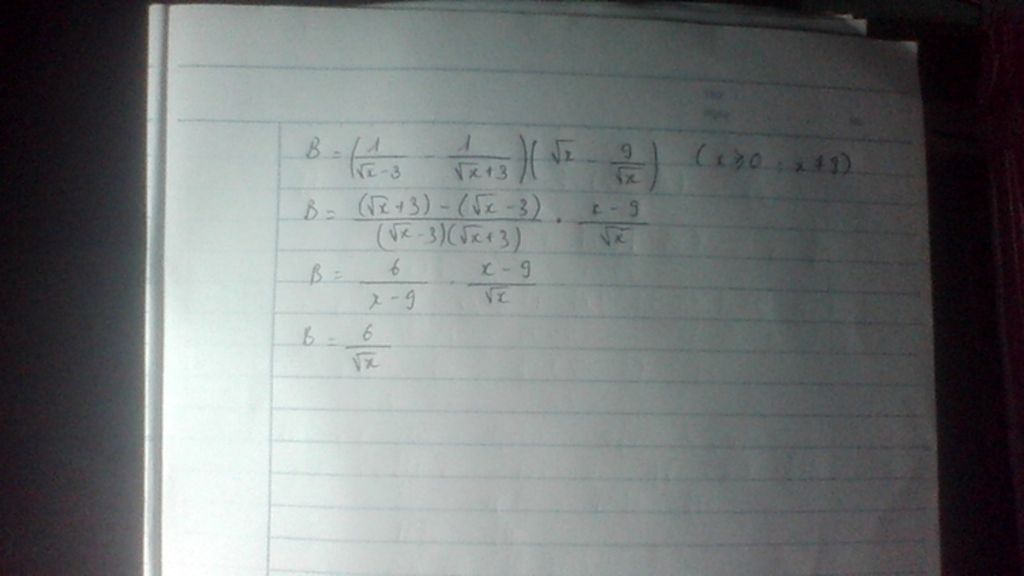 B = (1/(√x-3) - 1/(√x+3))(√x - 9/√x) (x ≥ 0 ; x ≠ 9)
B = ((√x+3) - (√x-3))/((√x-3)(√x+3)) . (x-9)/√x
B = 6/(x-9) . (x-9)/√x
B = 6/√x